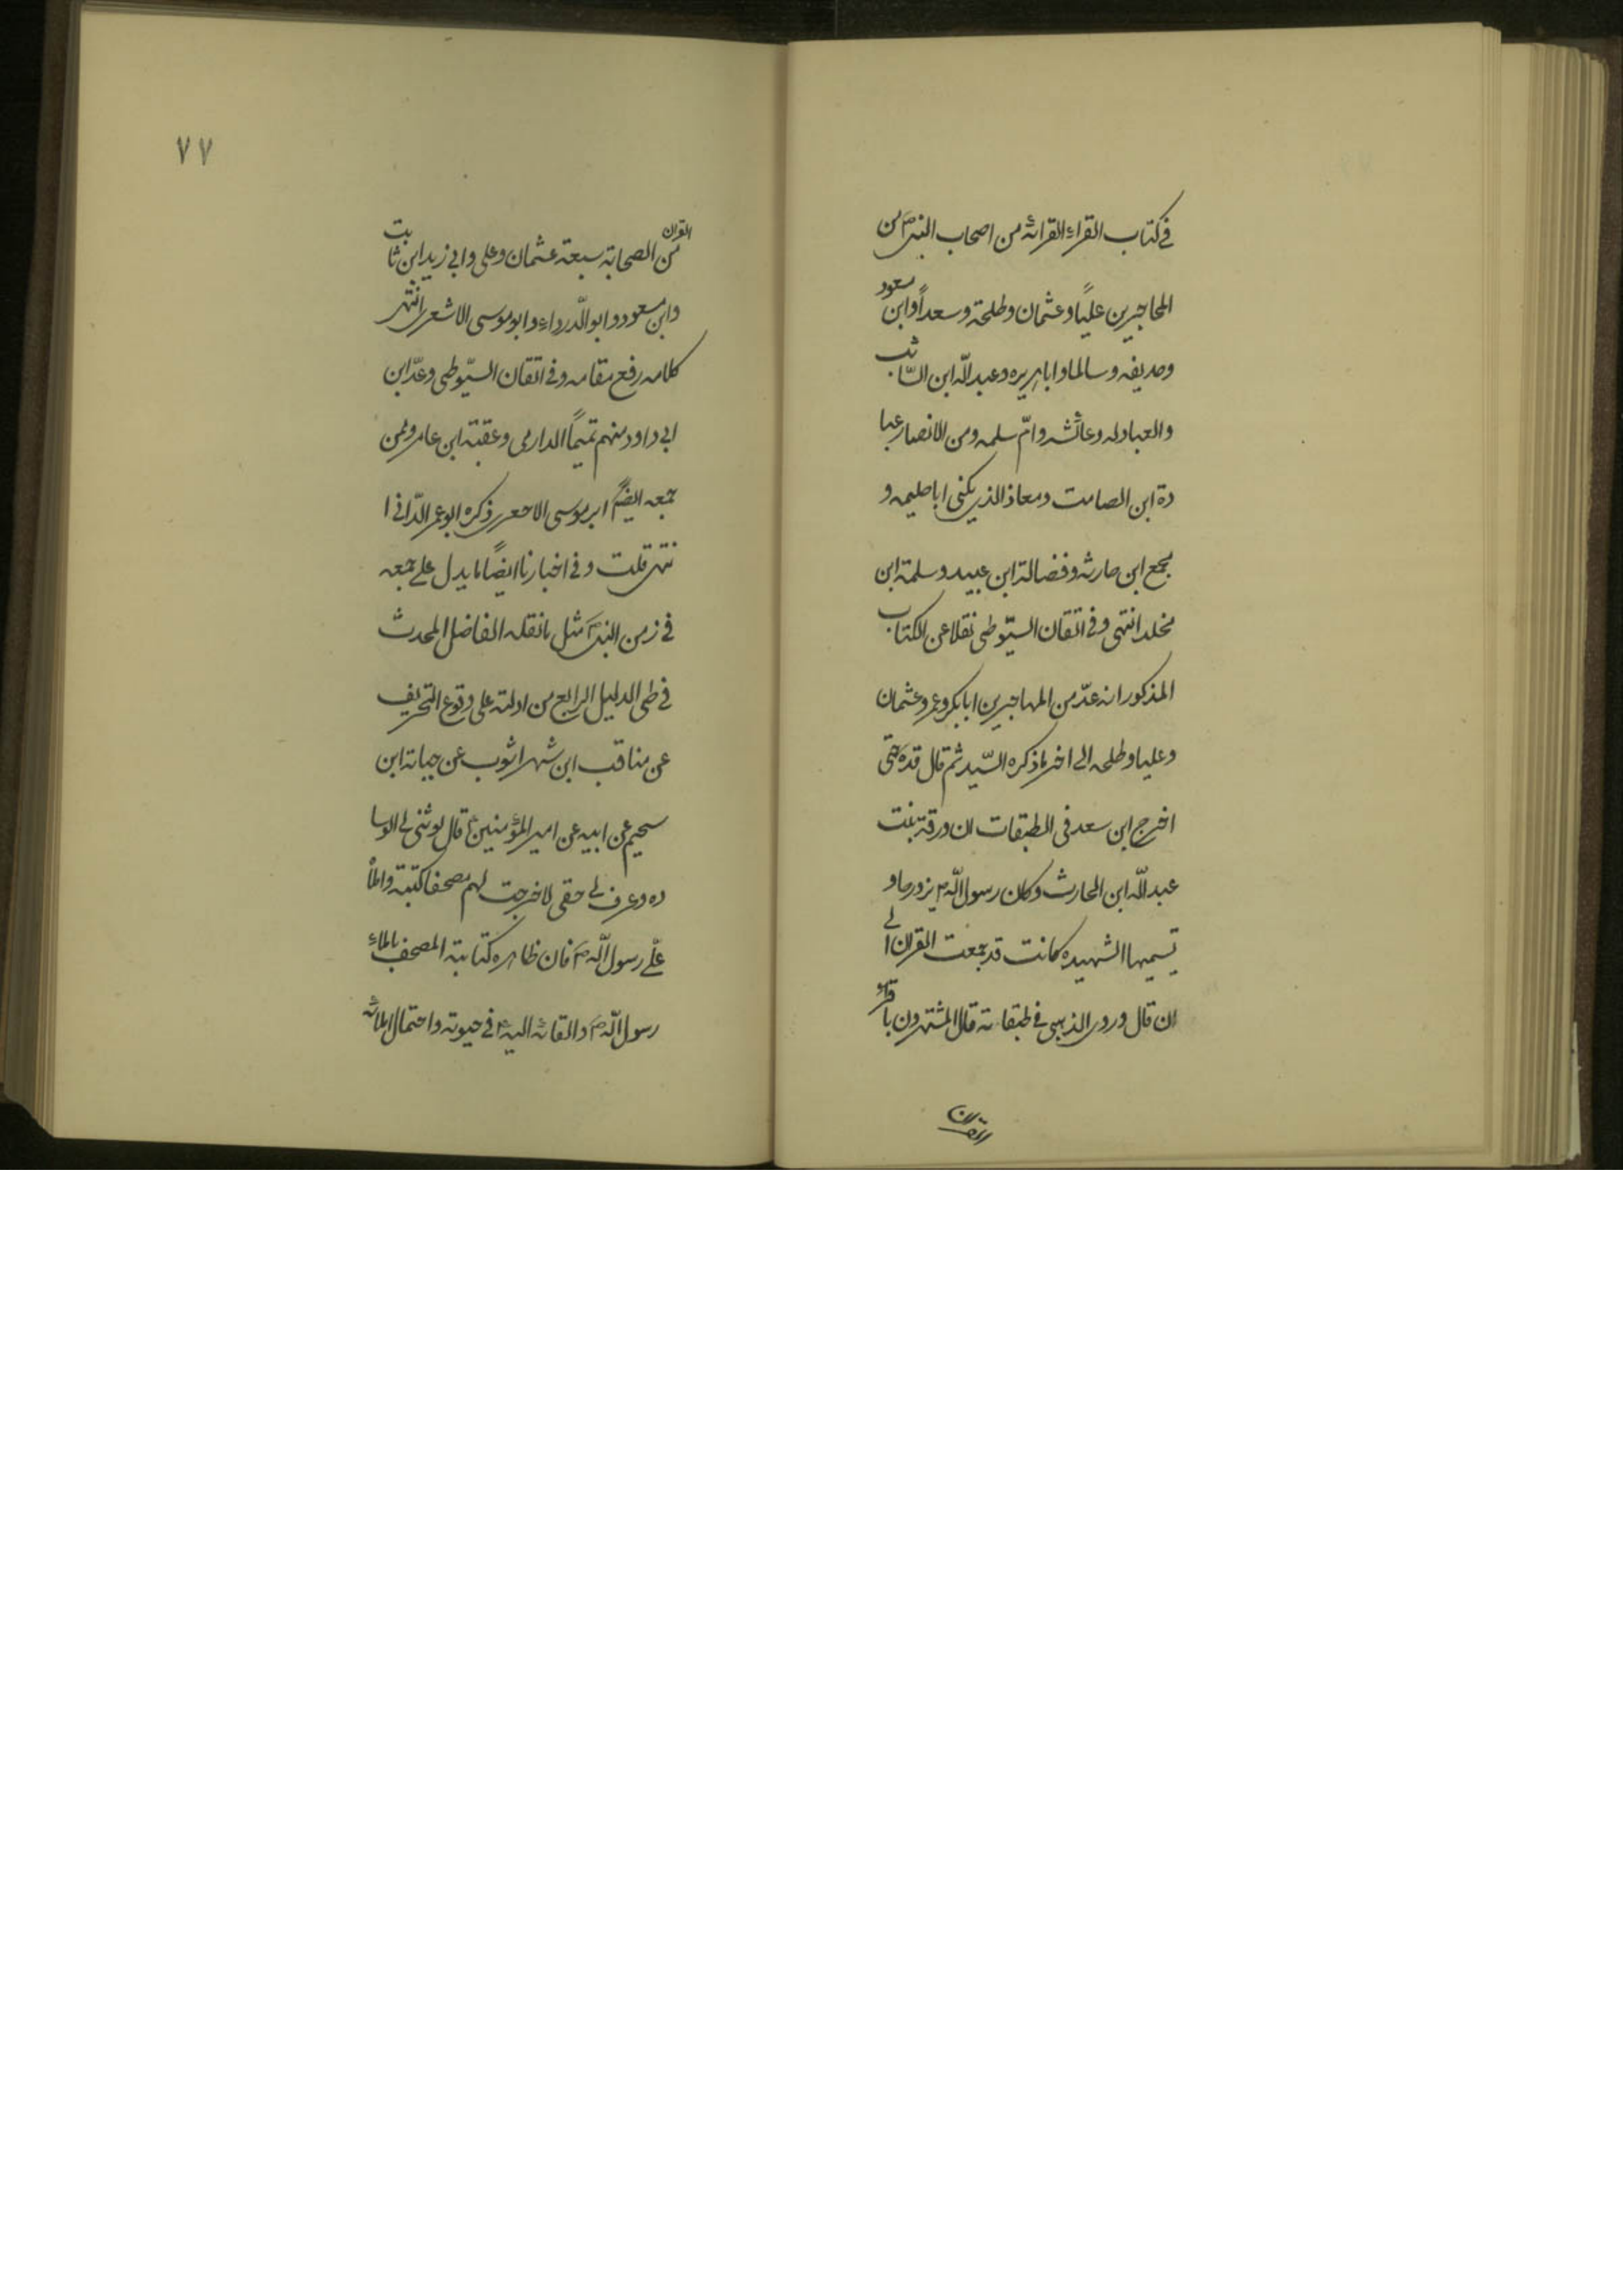 في كتاب القراء القرائة من اصحاب النبي ص من
المحاجيرين علياً وعثمان وطلحة وسعداً وابن مسعود
وحذيفه وسالما وابا هريره وعبد الله ابن السّائب
والعبادله وعائشه وامّ سلمه ومن الانصار عبا
دة ابن الصامت ومعاذ الذي يكنى ابا حليمه و
مجمع ابن حارثه وفضالة ابن عبيد وسلمة ابن
مخلد انتهى وفي اتقان السيّوطي نقلا عن الكتاب
المذكور انه عدّ من المهاجيرين ابا بكر وعمر وعثمان
وعليا وطلحه الى اخر ما ذكره السّيد ثم قال قده حتى
اخرج ابن سعد فى الطبقات ان ورقة بنت
عبد الله ابن الحارث وكان رسول الله ص يزورها و
تسميها الشهيده كانت قد جمعت القران الى
ان قال وروى الذهبي في طبقاته قال المشتهرون باقراء
القران
٧٧
القران
من الصحابة سبعة عثمان وعلى وابي زيد ابن ثابت
وابن مسعود وابو الدّرداء وابو موسى الاشعرى انتهى
كلامه رفع مقامه وفي اتقان السيّوطي وعدّ ابن
ابي داود منهم تميماً الدارمى وعقبة ابن عامر وممن
جمعه ايضاً ابو موسى الاحعرى ذكره ابو عمر الدّاني ا
نتهى قلت وفي اخبارنا ايضاً ما يدل على جمعه
في زمن النبي ص مثل ما نقله الفاضل المحدث
في طى الدليل الرابع من ادلته على وقوع التحريف
عن مناقب ابن شهر اشوب عن جبلة ابن
سحيم عن ابيه عن امير المؤمنين ع قال لو ثنى لى الوسا
ده وعرف لى حقى لاخرجت لهم مصحفا كتبته واملأ
علّى رسول الله ص فان ظاهره كتابة المصحف باملاء
رسول الله ص والقائه اليه ع في حيوته واحتمال املائه